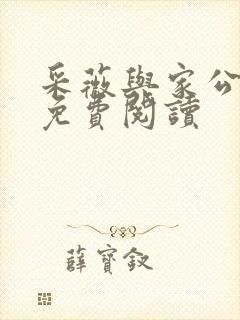 采薇與家公
免費閱讀
薛寶釵